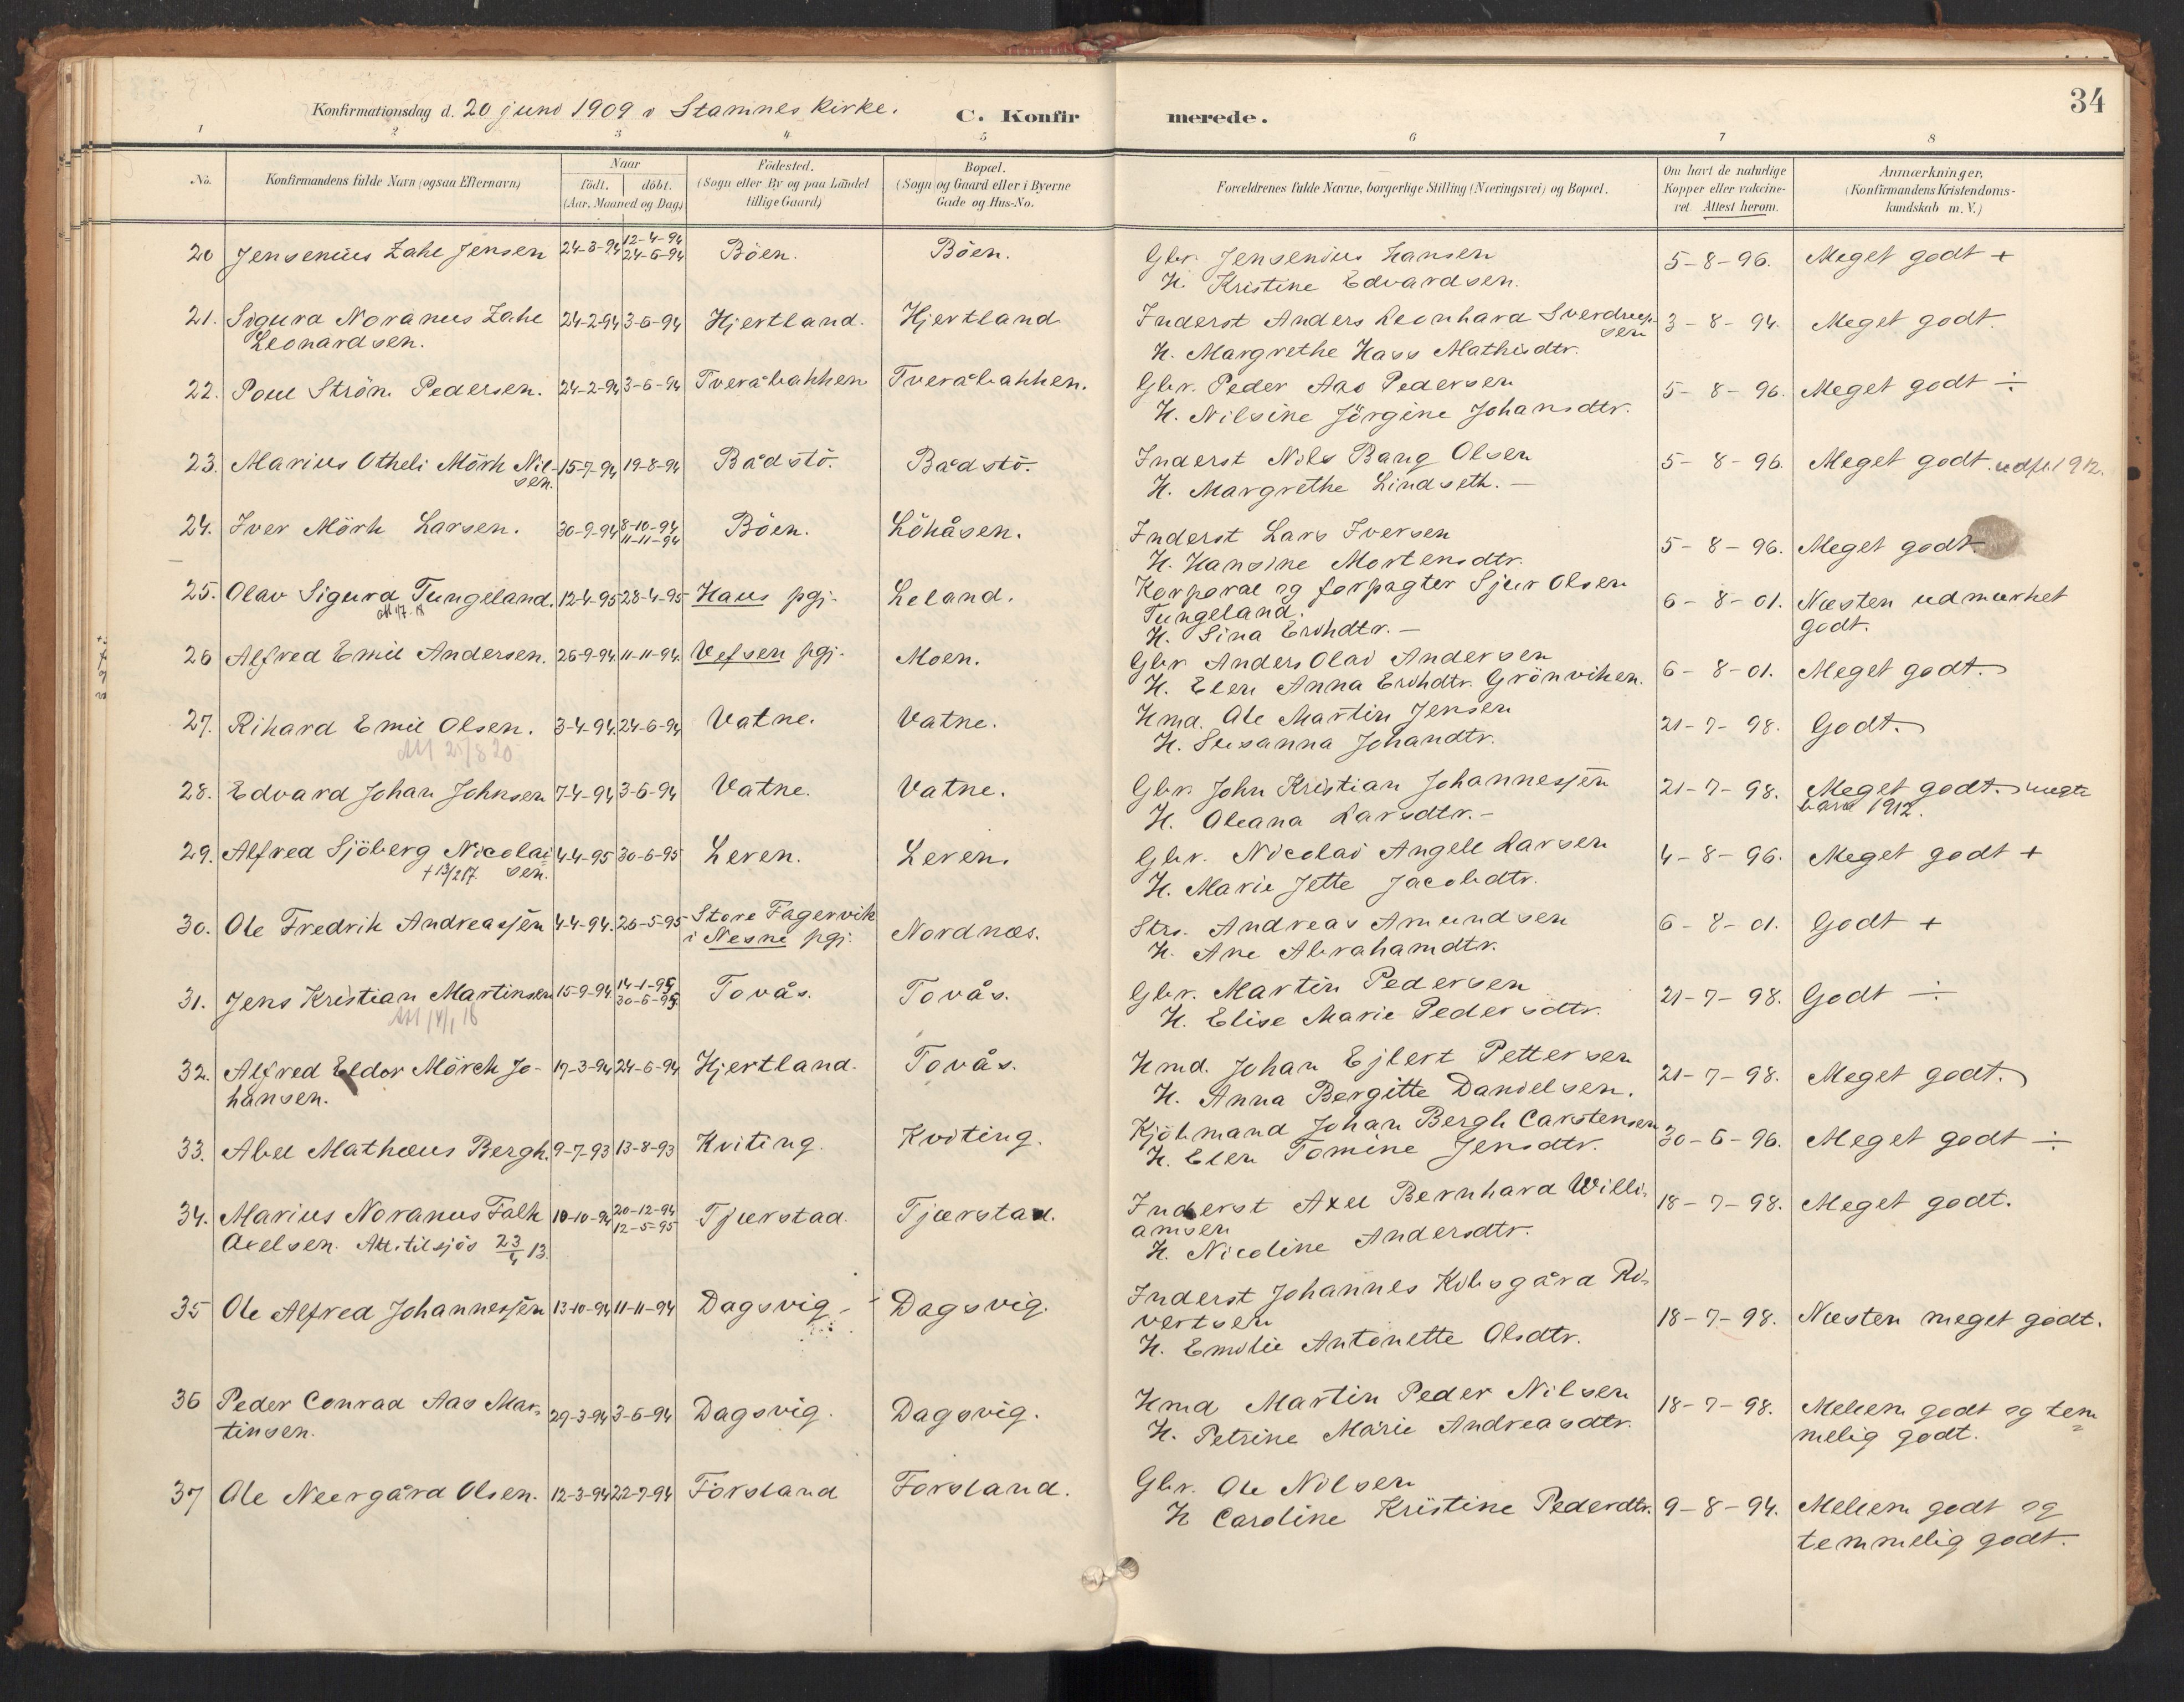 34
Konfirmationsdag d. 20 juni 1909 i Stamnes kirke.
C. Konfirmerede.
1 2 3 4 5 6 7 8
No.
Konfirmandens fulde Navn (ogsaa Efternavn)
Naar
födt. döbt.
(Aar, Maaned og Dag)
Födested.
(Sogn eller By og paa Landet
tillige Gaard)
Bopæl.
(Sogn og Gaard eller i Byerne
Gade og Hus-No.
Forældrenes fulde Navne, borgerlige Stilling (Næringsvei) og Bopæl.
Om havt de naturlige
Kopper eller vakcine-
ret. Attest herom.
Anmærkninger,
(Konfirmandens Kristendoms-
kundskab m. V.)
20 Jensenius Zahl Jensen 24-3-94 12-4-94 Böen. Böen. Gbr. Jensenius Hansen 5-8-96. Meget godt +
24-6-94 H. Kristine Edvardsen.
21. Sigurd Noranus Zahl 24-2-94 3-6-94 Hjertland. Hjertland. Inderst Anders Leonhard Sverdrup- 3-8-94. Meget godt.
Leonardsen. sen
H. Margrethe Hass Mathisdtr.
22. Poul Ström Pedersen. 24-2-94 3-6-94 Tveråbakken Tveråbakken. Gbr. Peder Aas Pedersen 5-8-96. Meget godt ÷
H. Nilsine Jörgine Johansdtr.
23. Marius Otheli Mörk Nil- 15-7-94 19-8-94 Bådstö. Bådstö. Inderst Nils Bang Olsen 5-8-96. Meget godt. udfl 1912.
sen. H. Margrethe Lindseth. —
24. Iver Mörk Larsen. 30-9-94 8-10-94 Böen. Lökåsen. Inderst Lars Iversen 5-8-96. Meget godt
11-11-94 H. Hansine Mortensdtr.
25. Olav Sigurd Tungeland. 12-4-95 28-4-95 Haus pgj. Leland. Korporal og forpagter Sjur Olsen 6-8-01. Næsten udmærket
Tungeland. godt.
H. Sina Erikdtr. —
26 Alfred Emil Andersen. 26-9-94. 11-11-94. Vefsen pgj. Moen. Gbr. Anders Olai Andersen 6-8-01. Meget godt.
H. Elen Anna Erikdtr. Grönviken.
27. Rikard Emil Olsen. 3-4-94. 24-6-94 Vatne. Vatne. Hmd. Ole Martin Jensen 21-7-98. Godt.
Att 25/8 20 H. Susanna Johandtr.
28. Edvard Johan Johnsen 7-4-94 3-6-94 Vatne. Vatne. Gbr. John Kristian Johannessen 21-7-98. Meget godt.
1912.
H. Oleana Larsdtr. —
29. Alfred Sjöberg Nicolai 4-4-95 30-6-95 Leren. Leren. Gbr. Nicolai Angell Larsen 4-8-96. Meget godt +
+ 13/2 17. sen. H. Marie Jette Jacobdtr.
30. Ole Fredrik Andreassen 4-4-94. 26-5-95 Store Fagervik Nordnæs. Strs. Andreas Amundsen 6-8-01. Godt +
i Nesne pgj. H. Ane Abrahamdtr.
31. Jens Kristian Martinsen 15-9-94. 14-1-95 Tovås. Tovås. Gbr. Martin Pedersen 21-7-98. Godt ÷
Att 14/1 16 30-6-95 H. Elise Marie Pedersdtr.
32. Alfred Eldor Mörch Jo- 17-3-94 24-6-94 Hjertland. Tovås. Hmd. Johan Ejlert Pettersen 21-7-98. Meget godt.
hansen. H. Anna Bergitte Danielsen.
33. Abel Mathæus Bergh. 9-7-93 13-8-93 Kviting. Kviting. Kjöbmand Johan Bergh Carstensen 30-6-96. Meget godt ÷
H. Elen Tomine Jensdtr.
34. Marius Noranus Falk 10-10-94 20-12-94 Tjærstad. Tjærstad. Inderst Axel Bernhard Willi- 18-7-98. Meget godt.
Axelsen. Att. tilsjös 23/4 13. 12-5-95 amsen
H. Nicoline Andersdtr.
35 Ole Alfred Johannessen 13-10-94 11-11-94 Dagsvig Dagsvig. Inderst Johannes Kibsgård Ri- 18-7-98. Næsten meget godt.
vertsen
H. Emilie Antonette Olsdtr.
36 Peder Conrad Aas Mar- 29-3-94 3-6-94 Dagsvig. Dagsvig. Hmd Martin Peder Nilsen 18-7-98. Mellem godt og tem
tinsen. H. Petrine Marie Andreasdtr. melig godt.
37 Ole Neergård Olsen. 12-3-94 22-7-94 Forsland Forsland. Gbr. Ole Nilsen
H Caroline Kristine Pederdtr. 9-8-94. Mellem godt og
temmelig godt.